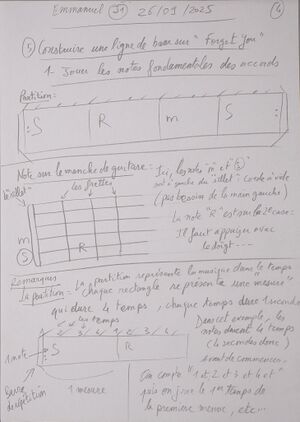 Emmanuel J1 26/01/2025 4
5 Construire une ligne de basse sur "Forget You"
1- Jouer les notes fondamentales des accords
Partition:
S R m S
Note sur le manche de guitare:
Ici, les notes "m" et "S"
sont à gauche du "sillet": corde à vide
(pas besoin de la main gauche)
La note "R" est sur la 2e case:
Il faut appuyer avec
le doigt ---
le "sillet"
les frettes
m
S
R
Remarques
La partition = La partition représente la musique dans le temps
chaque rectangle représente une "mesure"
qui dure 4 temps, chaque temps dure 1 seconde
les temps
Dans cet exemple, les
notes durent 4 temps
(4 secondes donc)
avant de commencer.
S R
1 note
Barre
de répétition
1 mesure
On compte "1 et 2 et 3 et 4 et"
puis on joue le 1er temps de
la première mesure, etc...